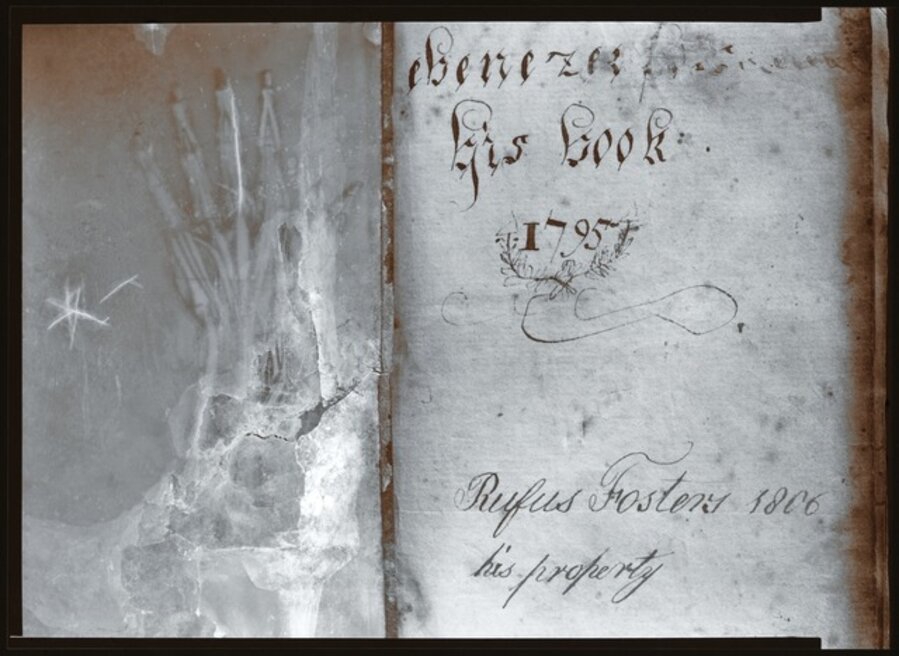 ebenezer
his book
1795
Rufus Fosters 1806
his property